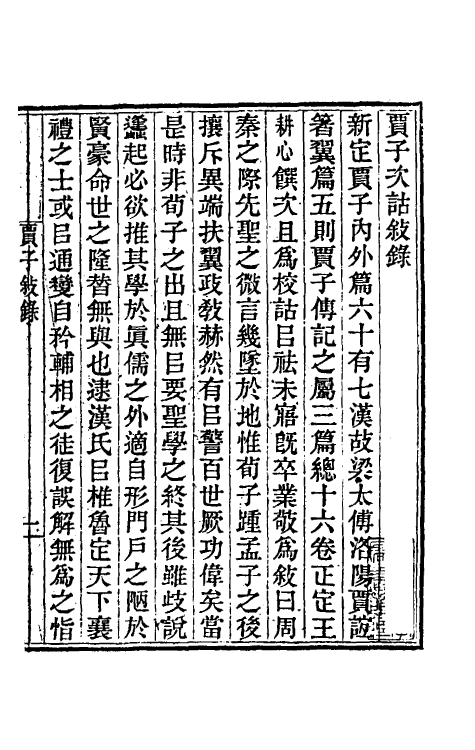 賈子次詁敘錄
新定賈子內外篇六十有七漢故梁太傅洛陽賈誼
箸翼篇五則賈子傳記之屬三篇總十六卷正定王
耕心饌次且爲校詁㠯祛未寤旣卒業敬爲敘曰周
秦之際先聖之微言幾墜於地惟荀子踵孟子之後
攘斥異端扶翼政敎赫然有㠯警百世厥功偉矣當
是時非荀子之出且無㠯要聖學之終其後雖歧說
蠭起必欲推其學於眞儒之外適自形門戶之陋於
賢豪命世之隆替無與也逮漢氏㠯椎魯定天下襄
禮之士或㠯通變自矜輔相之徒復誤解無爲之恉
賈子敘錄
一